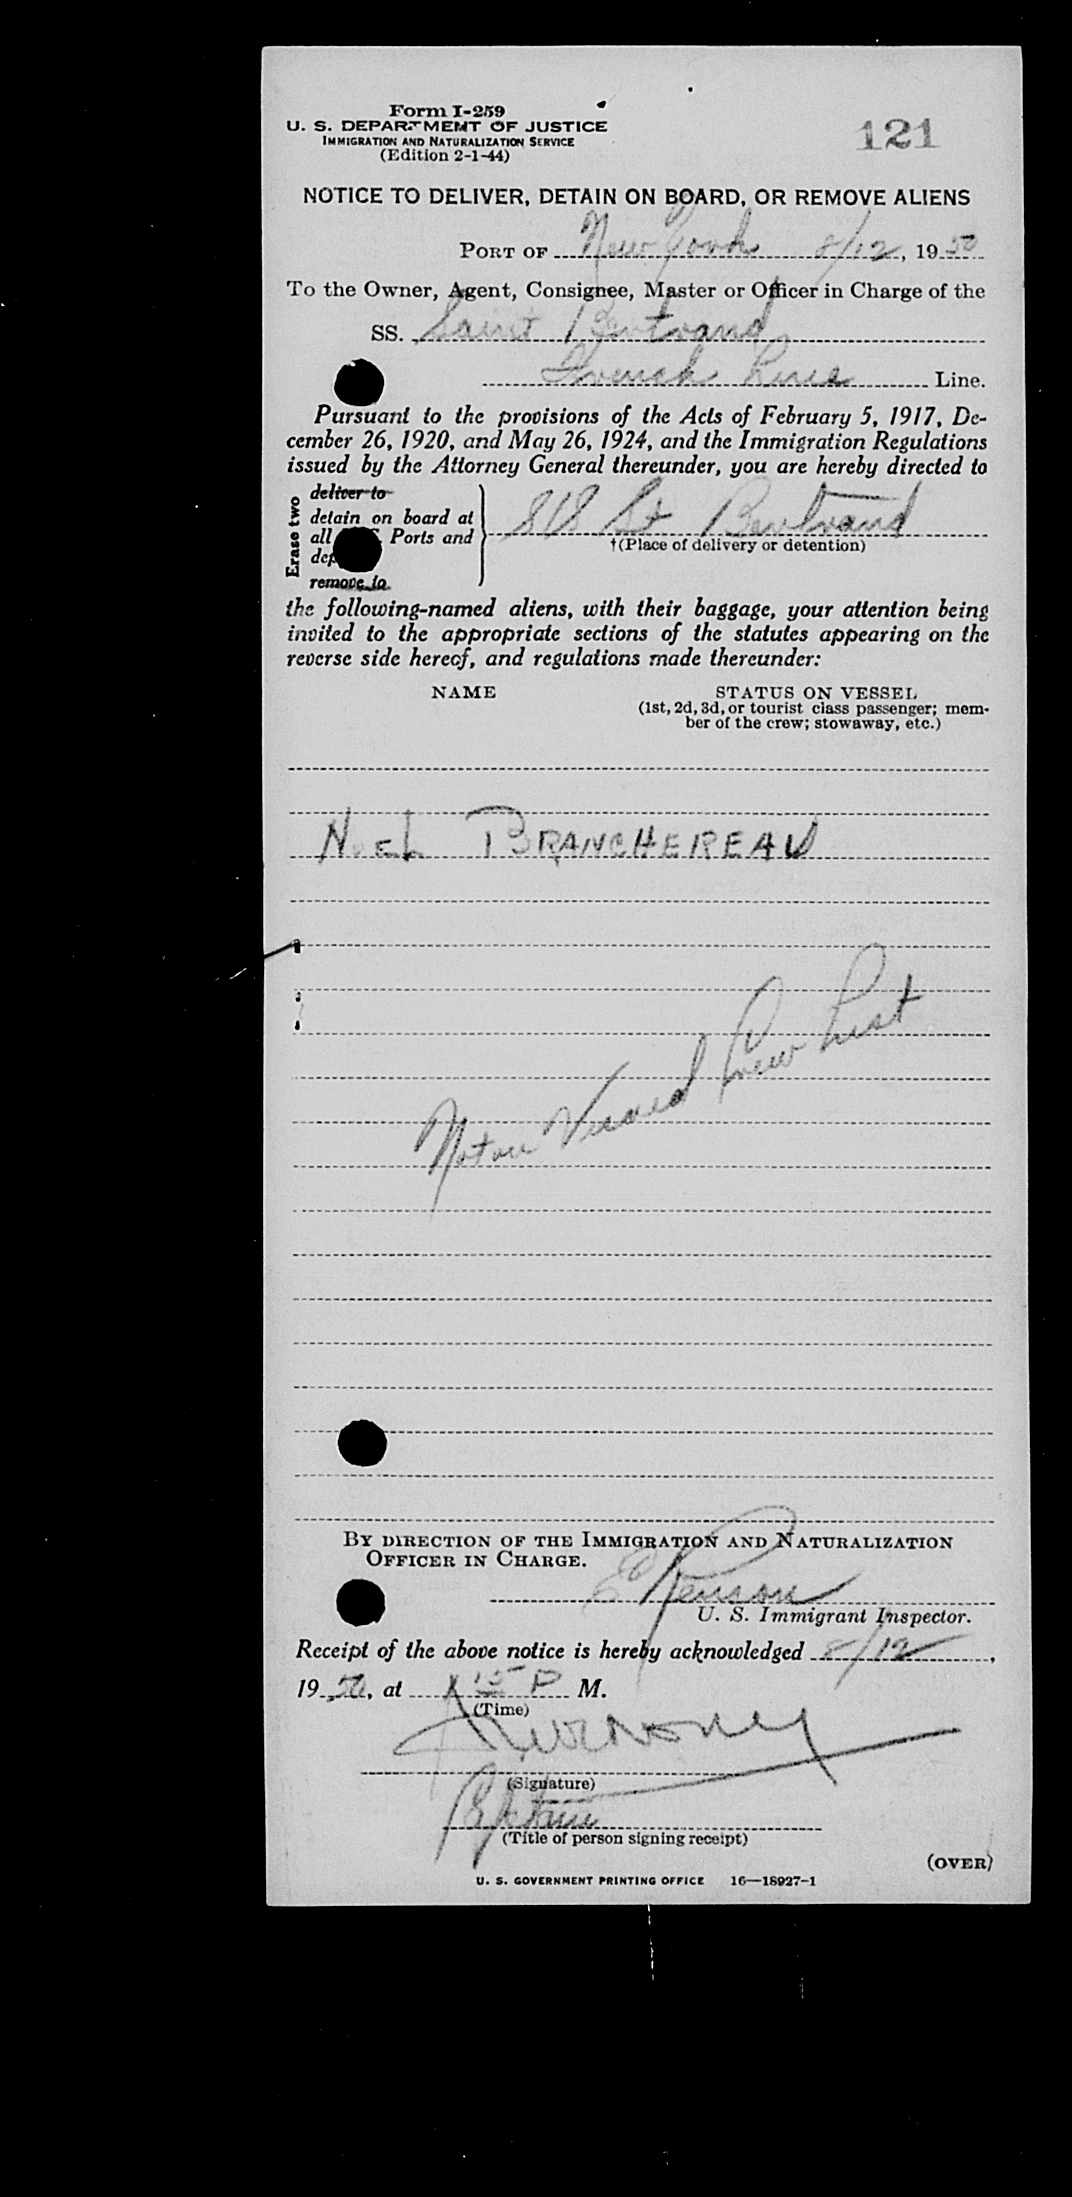 Form I-259
U. S. DEPARTMENT OF JUSTICE
IMMIGRATION AND NATURALIZATION SERVICE
(Edition 2-1-44)
121
NOTICE TO DELIVER, DETAIN ON BOARD, OR REMOVE ALIENS
PORT OF New York 8/12, 19 50
To the Owner, Agent, Consignee, Master or Officer in Charge of the
SS. Saint Bertrand
French Line Line.
Pursuant to the provisions of the Acts of February 5, 1917, De-
cember 26, 1920, and May 26, 1924, and the Immigration Regulations
issued by the Attorney General thereunder, you are hereby directed to
Erase two
deliver to
detain on board at
all Ports and
remove to
S/S St Bertrand
†(Place of delivery or detention)
the following-named aliens, with their baggage, your attention being
invited to the appropriate sections of the statutes appearing on the
reverse side hereof, and regulations made thereunder:
NAME
STATUS ON VESSEL
(1st, 2d, 3d, or tourist class passenger; mem-
ber of the crew; stowaway, etc.)
BRANCHEREAU
Not on Visaed Crew List
BY DIRECTION OF THE IMMIGRATION AND NATURALIZATION
OFFICER IN CHARGE.
U. S. Immigrant Inspector.
Receipt of the above notice is hereby acknowledged 8/12,
19 50, at 15 P M.
(Time)
(Signature)
(Title of person signing receipt)
(OVER)
U. S. GOVERNMENT PRINTING OFFICE 16—18927-1